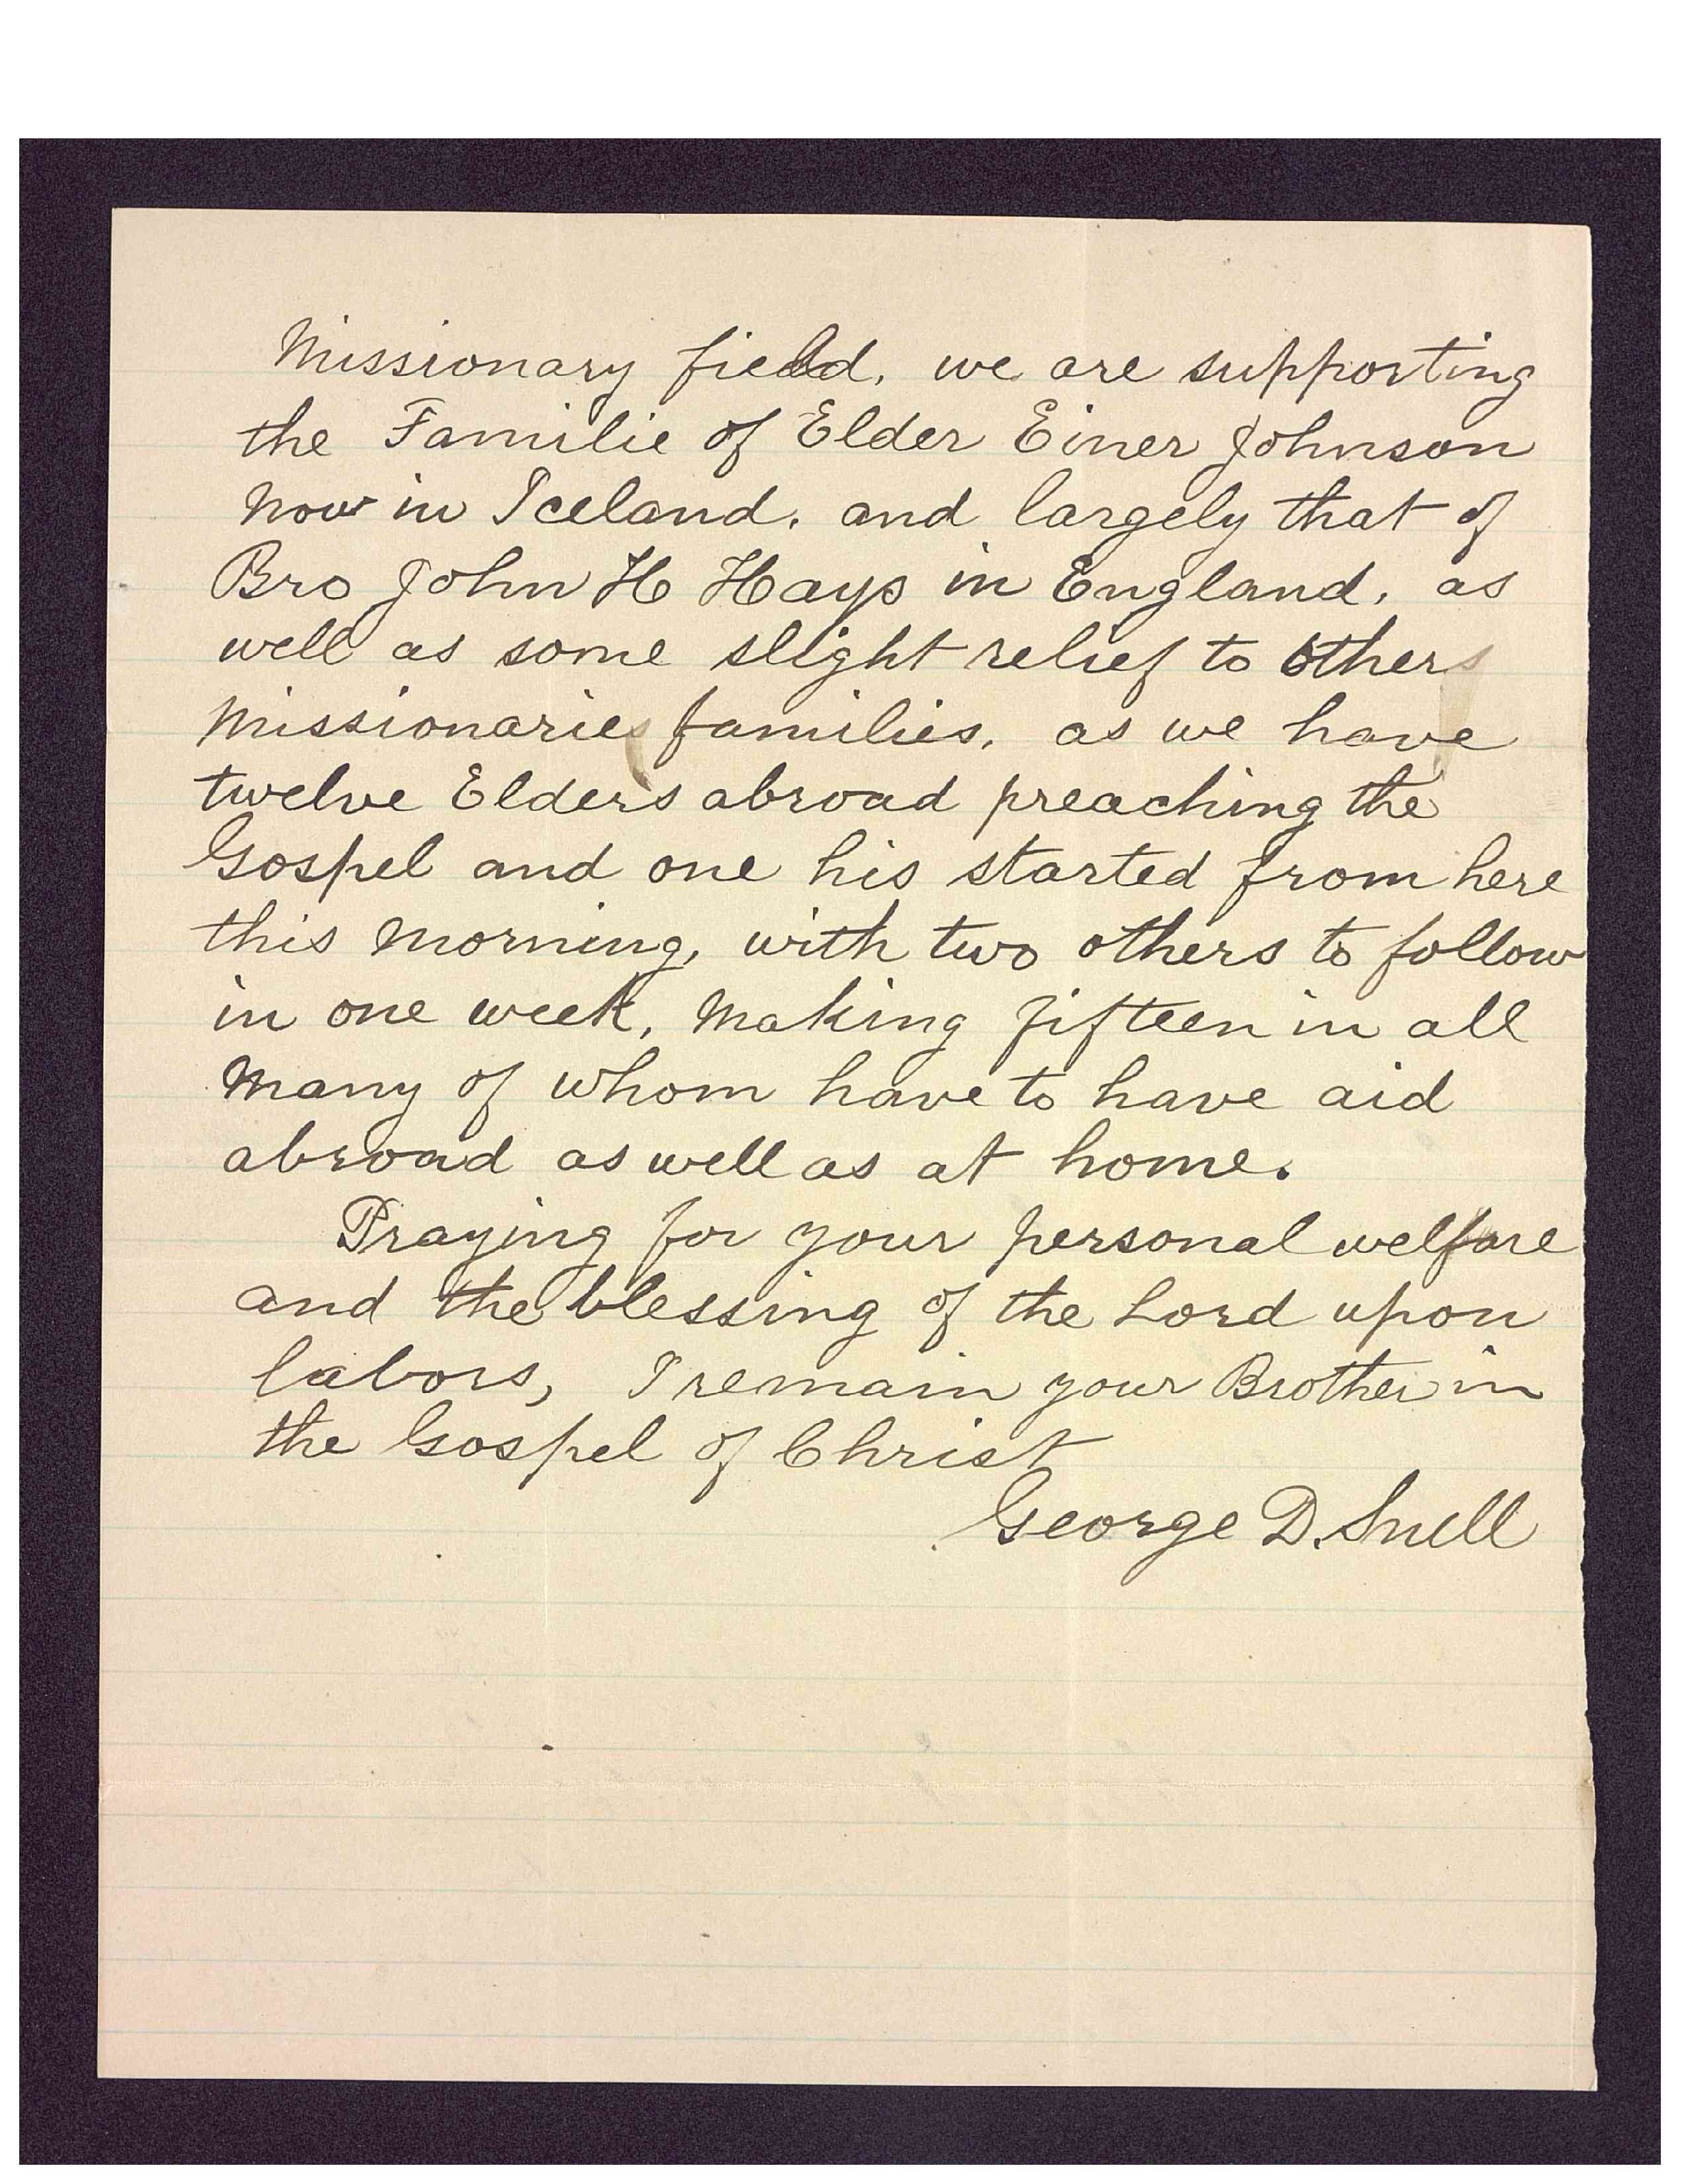 Missionary field, we are supporting
the Familie of Elder Einer Johnson
now in Iceland, and largely that of
Bro John H Hays in England, as
well as some slight relief to others
Missionaries families, as we have
twelve Elders abroad preaching the
Gospel and one his started from here
this morning, with two others to follow
in one week, making fifteen in all
many of whom have to have aid
abroad as well as at home.
Praying for your personal welfare
and the blessing of the Lord upon
labors, I remain your Brother in
the Gospel of Christ
George D. Snell